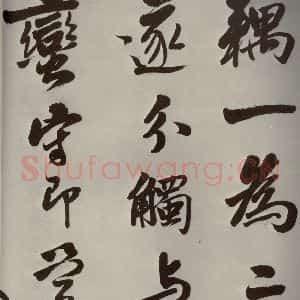 耦一為二
遂分觸與
蠻守即
Shufawang.cn